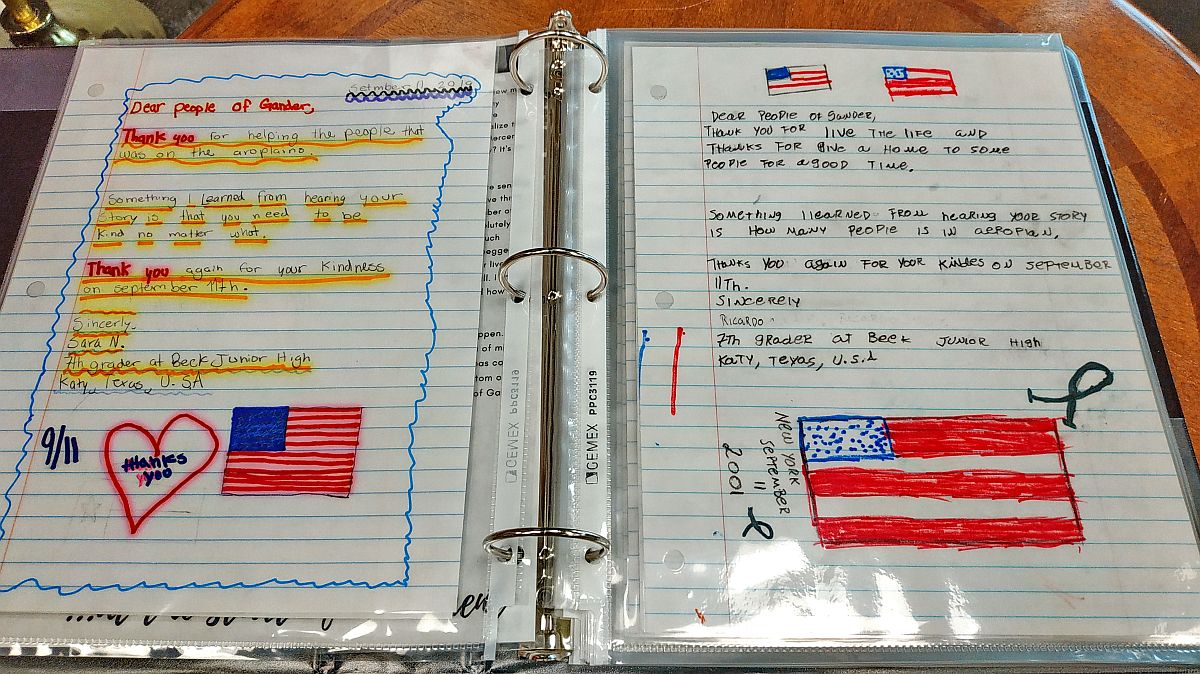 Setmber 11, 2019
Dear people of Gander,
Thank you for helping the people that
was on the aroplaino.
Something I learned from hearing your
Story is that you need to be
Kind no matter what.
Thank you again for your Kindness
on september 11th.
Sincerly.
Sara N.
7th grader at Beck Junior High
Katy, Texas, U.SA
9/11
thanks
yoo
CEMEX PPC3119
CEMEX PPC3119
Dear People of Gander,
THANK YOU FOR LIVE THE LIFE AND
THANKS FOR GIVE A HOME TO SOME
PEOPLE FOR A GOOD TIME.
SOMETHING I LEARNED FROM HEARING YOUR STORY
IS HOW MANY PEOPLE IS IN AEROPLAN,
THANKS YOU AGAIN FOR YOUR KINDES ON SEPTEMBER
11TH.
SINCERELY
RICARDO
7TH GRADER AT BECK JUNIOR HIGH
KATY, TEXAS, U.S.A
NEW YORK
SEPTEMBER
11
2001